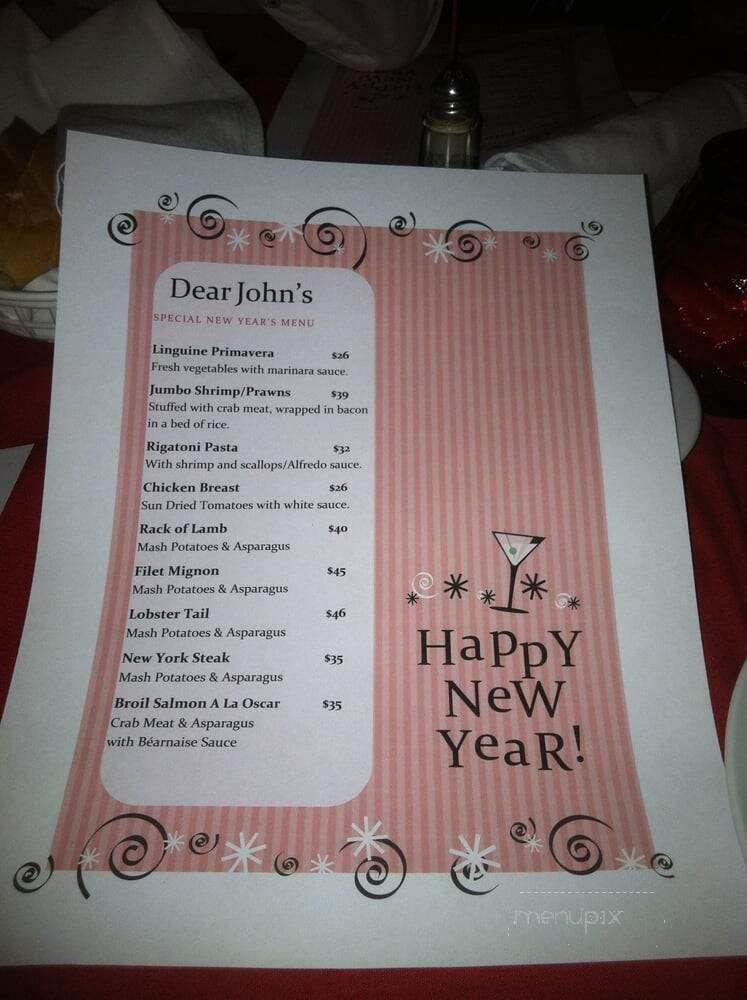 Dear John's
SPECIAL NEW YEAR'S MENU
Linguine Primavera $26
Fresh vegetables with marinara sauce.
Jumbo Shrimp/Prawns $39
Stuffed with crab meat, wrapped in bacon
in a bed of rice.
Rigatoni Pasta $32
With shrimp and scallops/Alfredo sauce.
Chicken Breast $26
Sun Dried Tomatoes with white sauce.
Rack of Lamb $40
Mash Potatoes & Asparagus
Filet Mignon $45
Mash Potatoes & Asparagus
Lobster Tail $46
Mash Potatoes & Asparagus
New York Steak $35
Mash Potatoes & Asparagus
Broil Salmon A La Oscar $35
Crab Meat & Asparagus
with Béarnaise Sauce
HaPpY
NeW
YeaR!
menupix